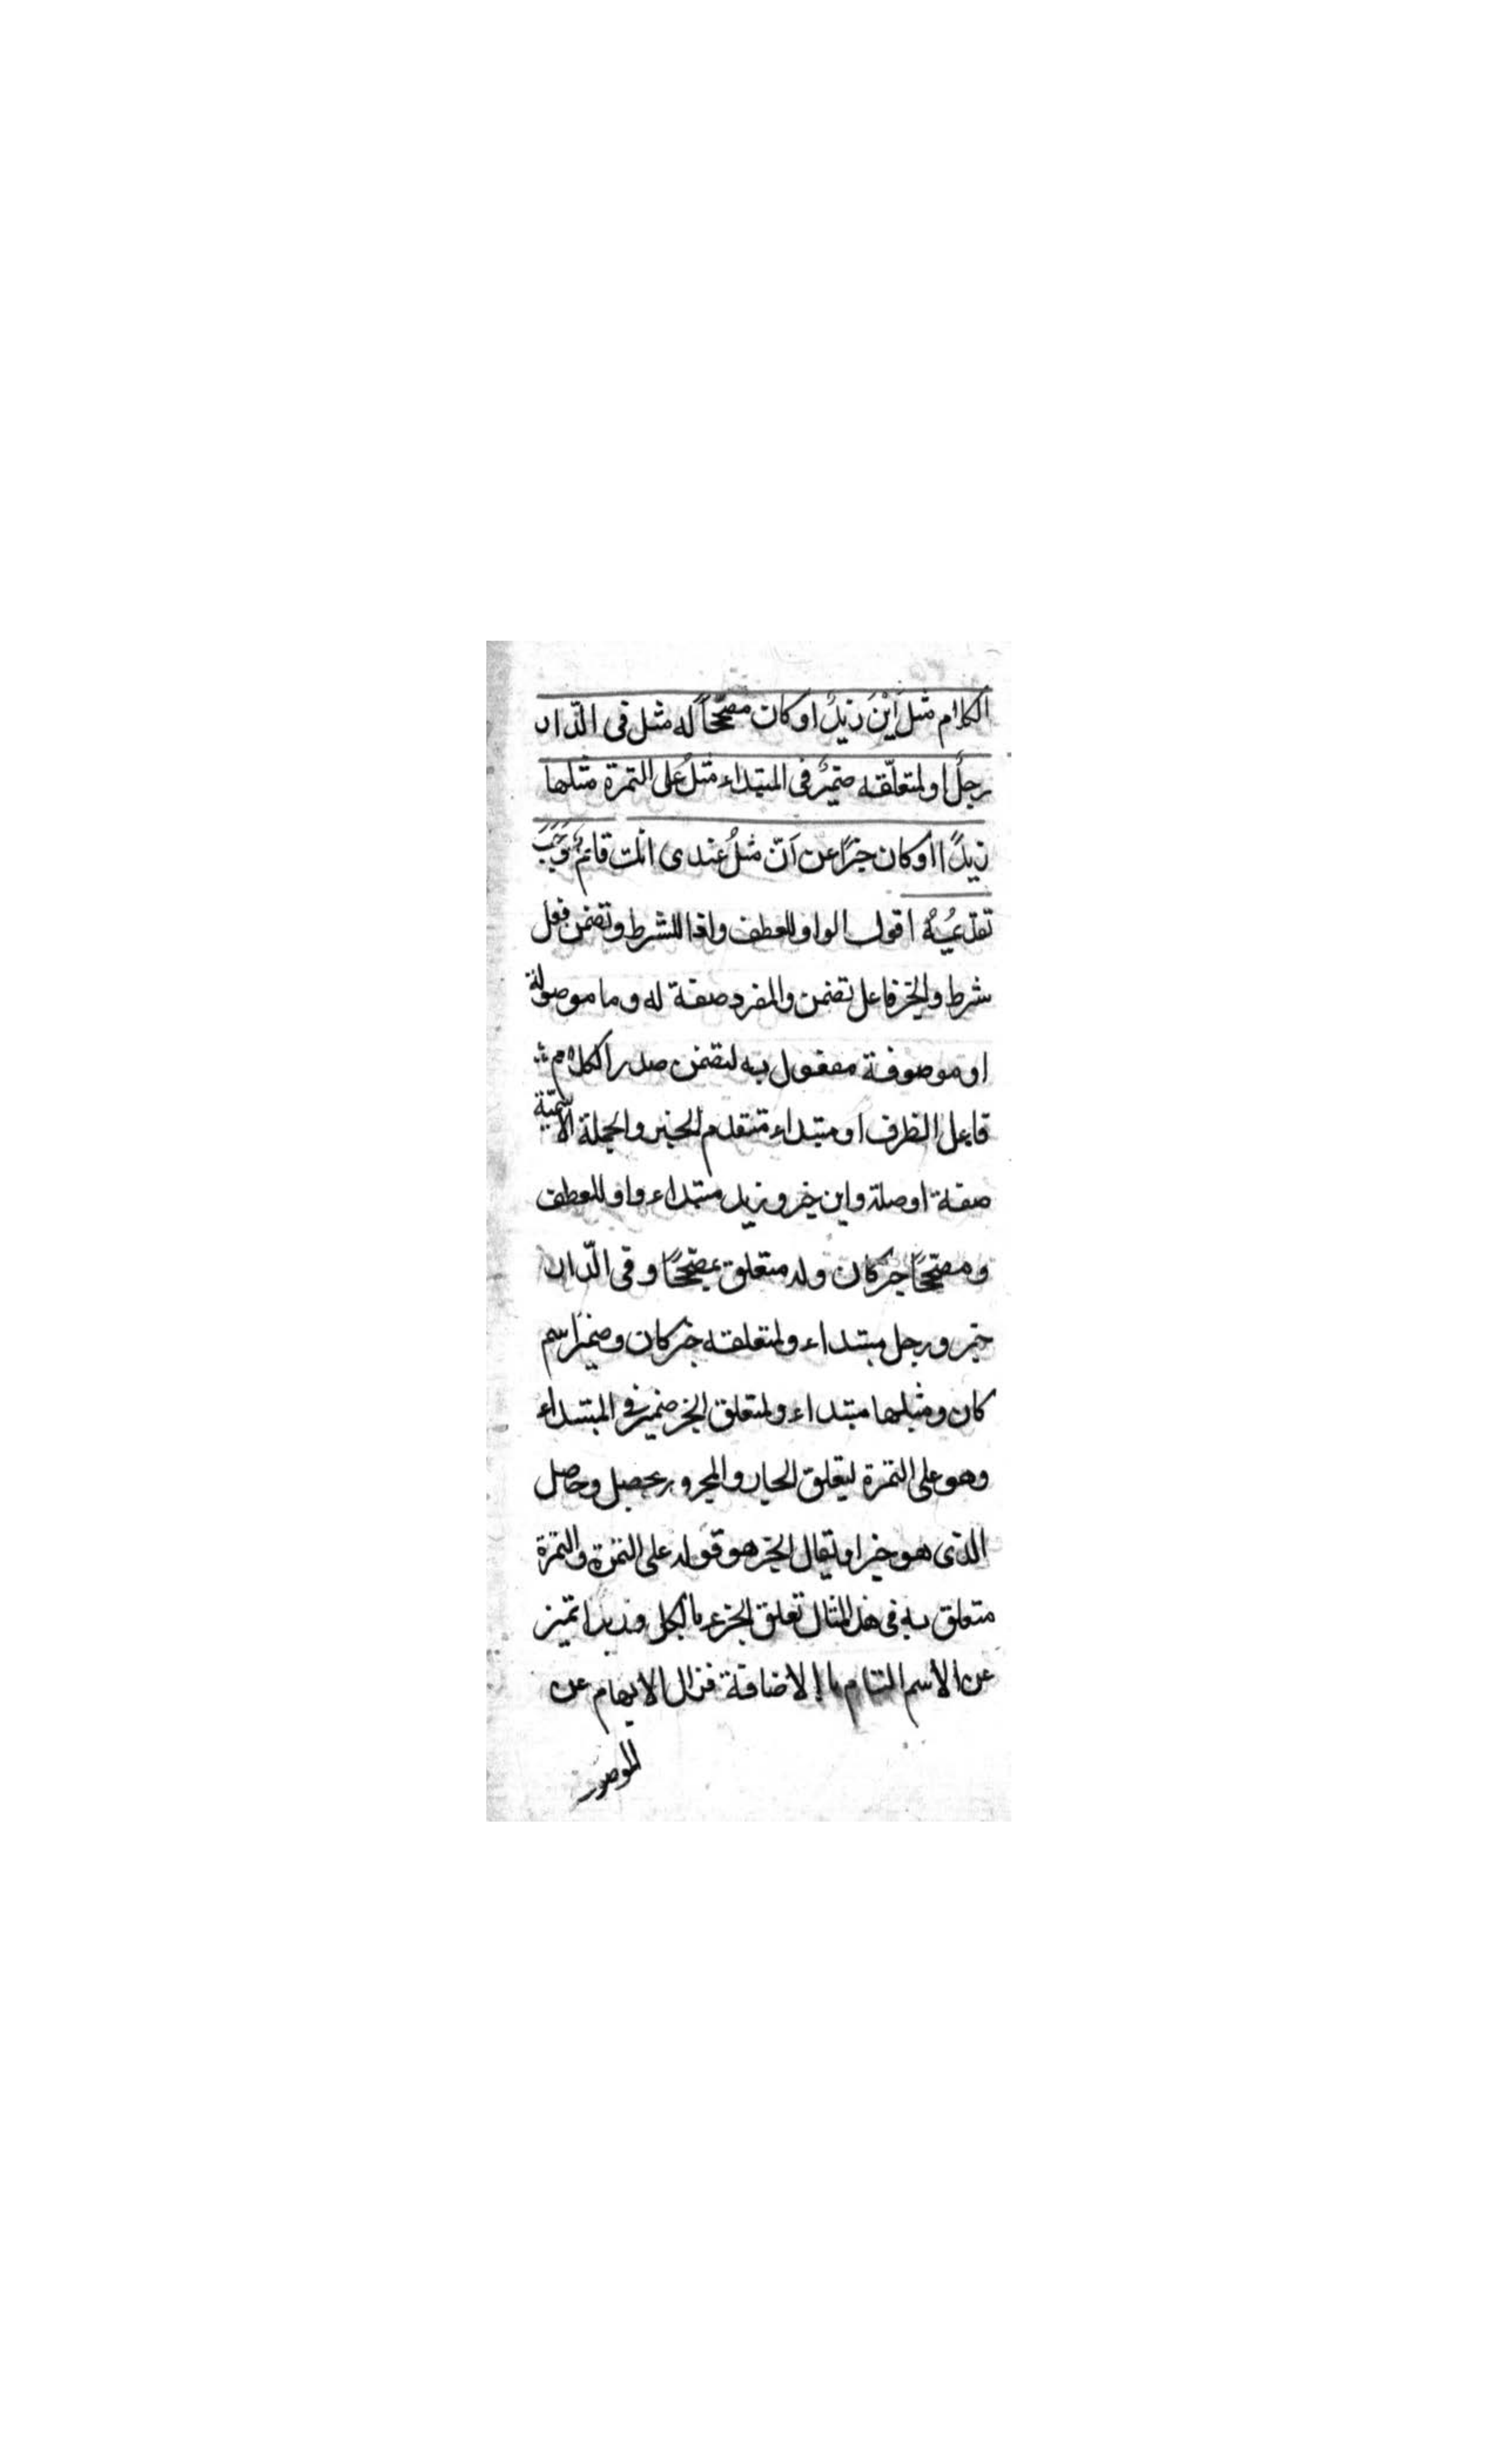 الكلام مثلَ اَيْنَ زيدٌ او كان مصحّحاً له مثل فى الدّار
رجلٌ او لمتعلّقه ضميرٌ فى المبتداء مثلُ على التمرة مثلها
زيدًا او كان خبرًا عن اَنّ مثلُ عندى انك قائمٌ وَجَبَ
تقديمُهُ اقول الواو للعطف واذا للشرط وتضمن فعل
شرط والخبر فاعل تضمن والمفرد صفة له وما موصولة
او موصوفة مفعول به لتضمن صدر الكلام
فاعل الظرف او مبتداء متقدم الخبر والجملة الاسميّة
صفة او صلة واين خبر وزيد مبتداء واو للعطف
ومصحّحًا خبر كان وله متعلق بمصحّحًا وفى الدّار
خبر ورجل مبتداء ولمتعلقه خبر كان وضمير اسم
كان ومثلها مبتداء ولمتعلق الخبر ضمير فى المبتداء
وهو على التمرة ليتعلق الجار والمجرور بحصل وحاصل
الذى هو خبر او يقال الخبر هو قوله على التمرة والتمرة
متعلق به فى هذا المثال تعلق الجزء بالكل وزبدا تميز
عن الاسم التام با الاضافة فزال الابهام عن